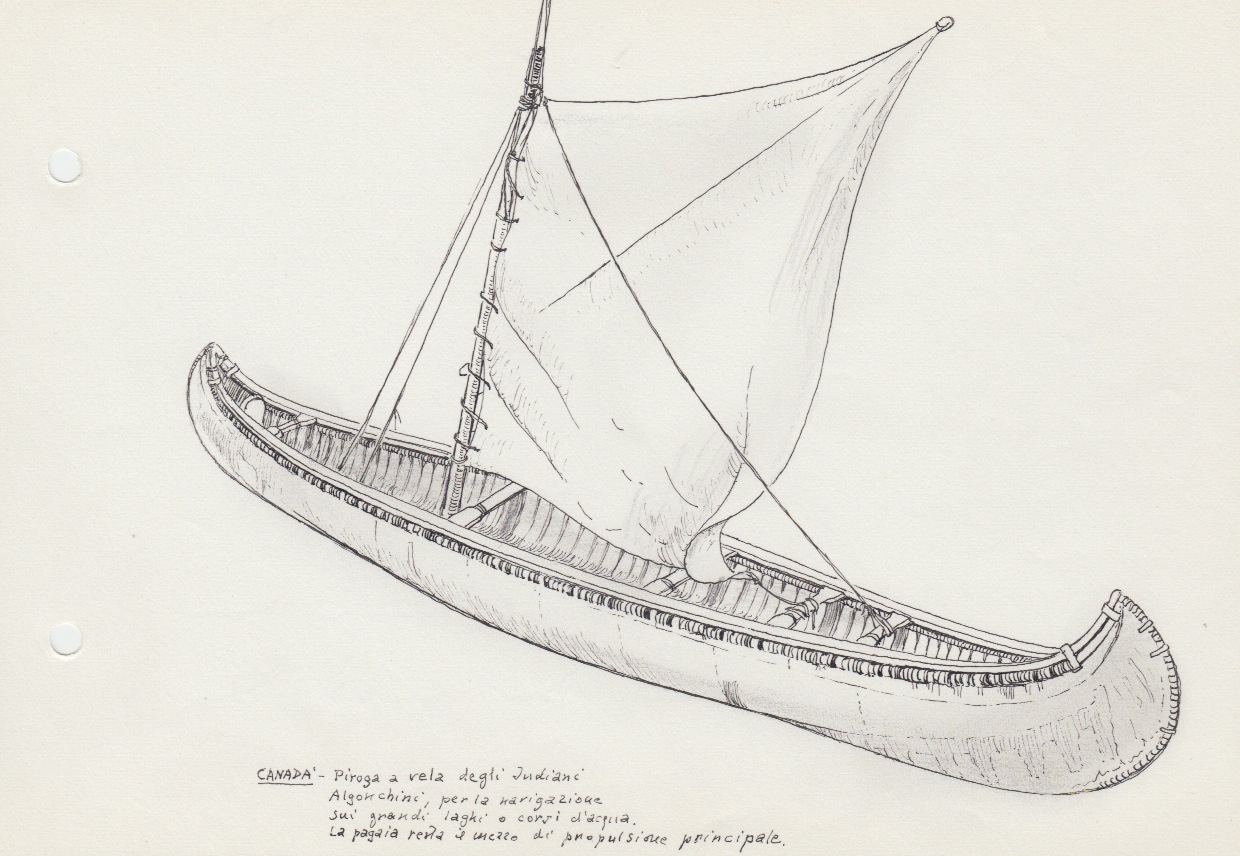 CANADA' - Piroga a vela degli Indiani
Algonchini, per la navigazione
sui grandi laghi o corsi d'acqua.
La pagaia resta il mezzo di propulsione principale.